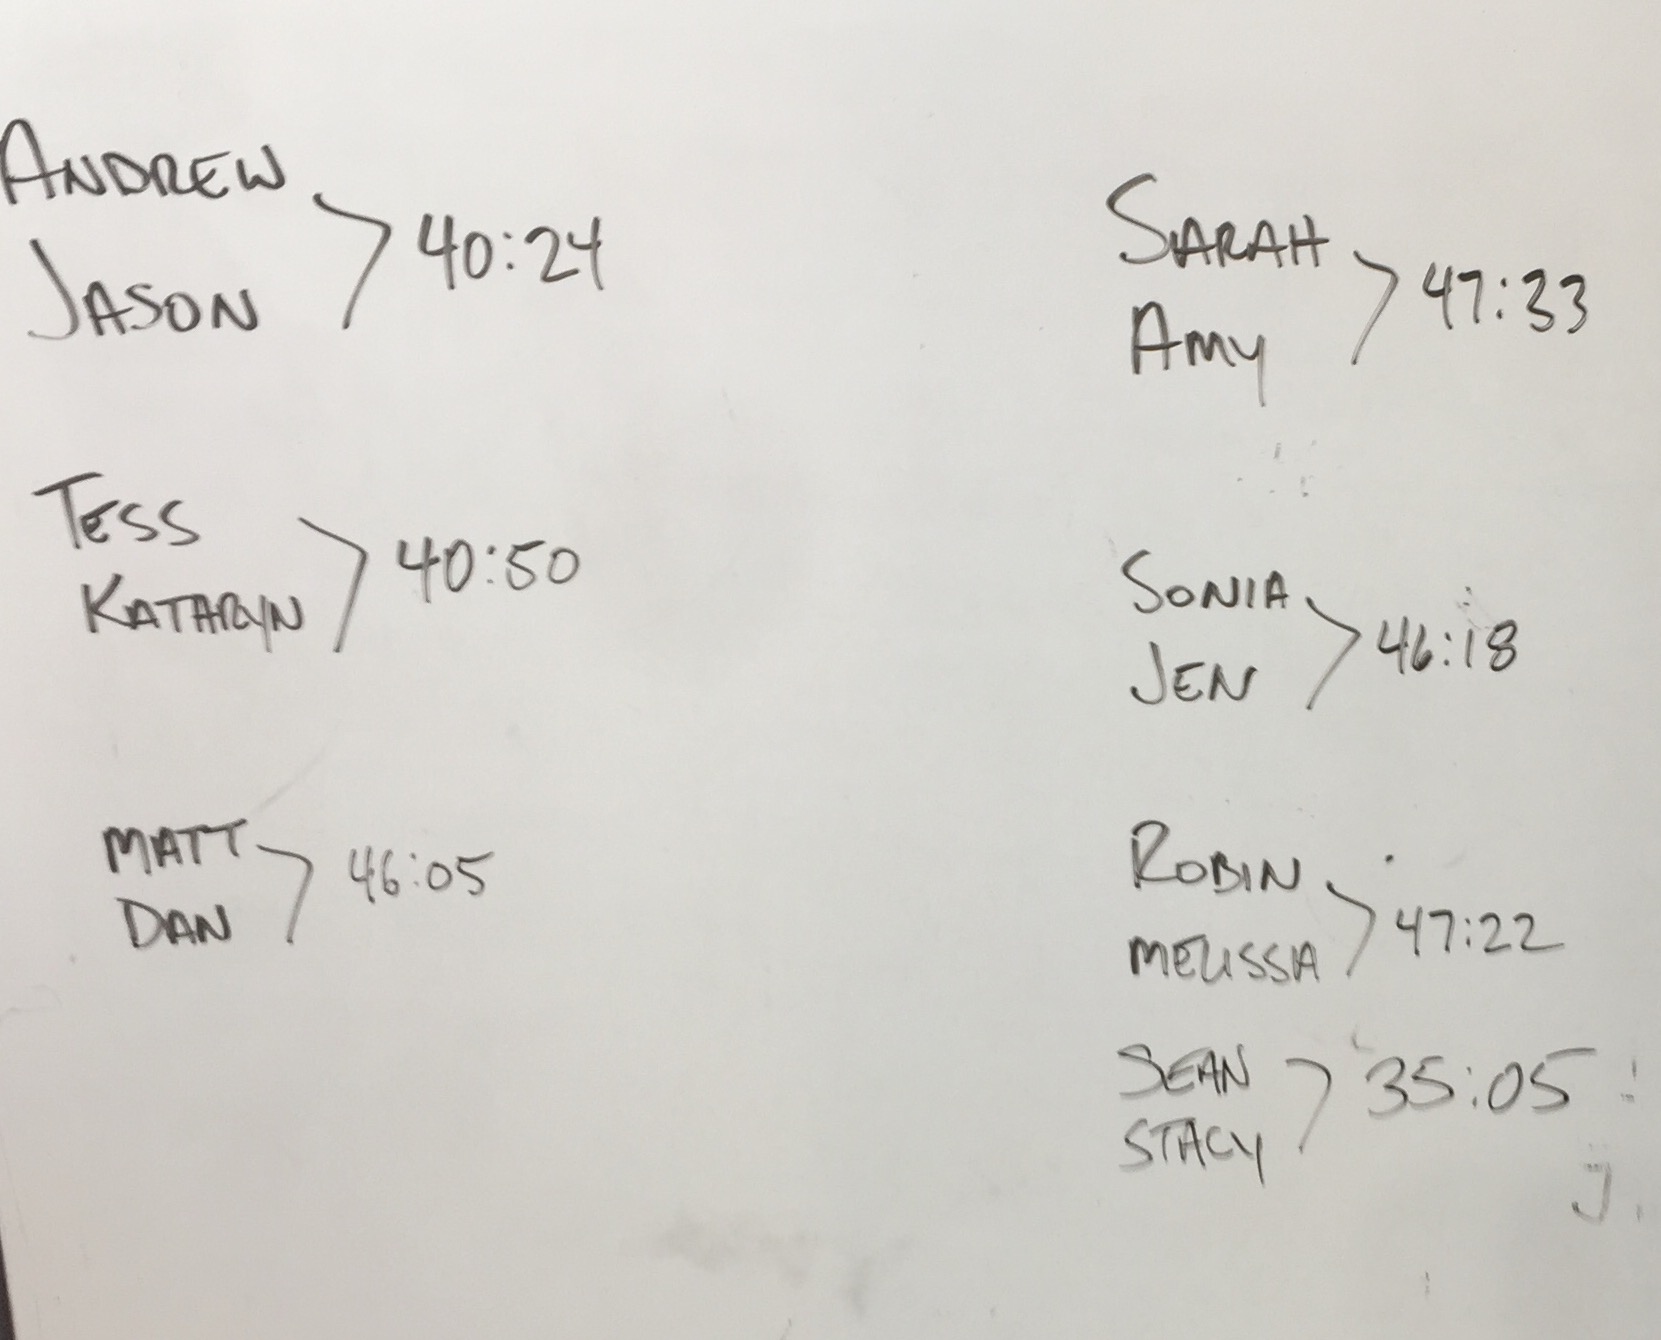 ANDREW
JASON
40:24
TESS
KATHRYN
40:50
MATT
DAN
46:05
SARAH
AMY
47:33
SONIA
JEN
46:18
ROBIN
MELISSA
47:22
SEAN
STACY
35:05